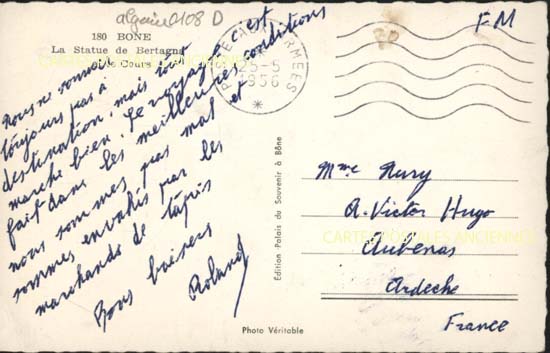 algérie 0108 D
180 BONE
La Statue de Bertagna
et le Cours
Nous ne sommes
toujours pas à
destination, mais tout
marche bien. Le voyage c'est
fait dans les meilleures conditions
nous sommes pas mal et
sommes envahis par les
marchands de tapis
Bons baisers
Roland
Edition Palais du Souvenir à Bône
Photo Véritable
POSTE AUX ARMEES
25-5
1956
*
F.M
Mme Nury
R. Victor Hugo
Aubenas
Ardeche
France
CARTES POSTALES ANCIENNES